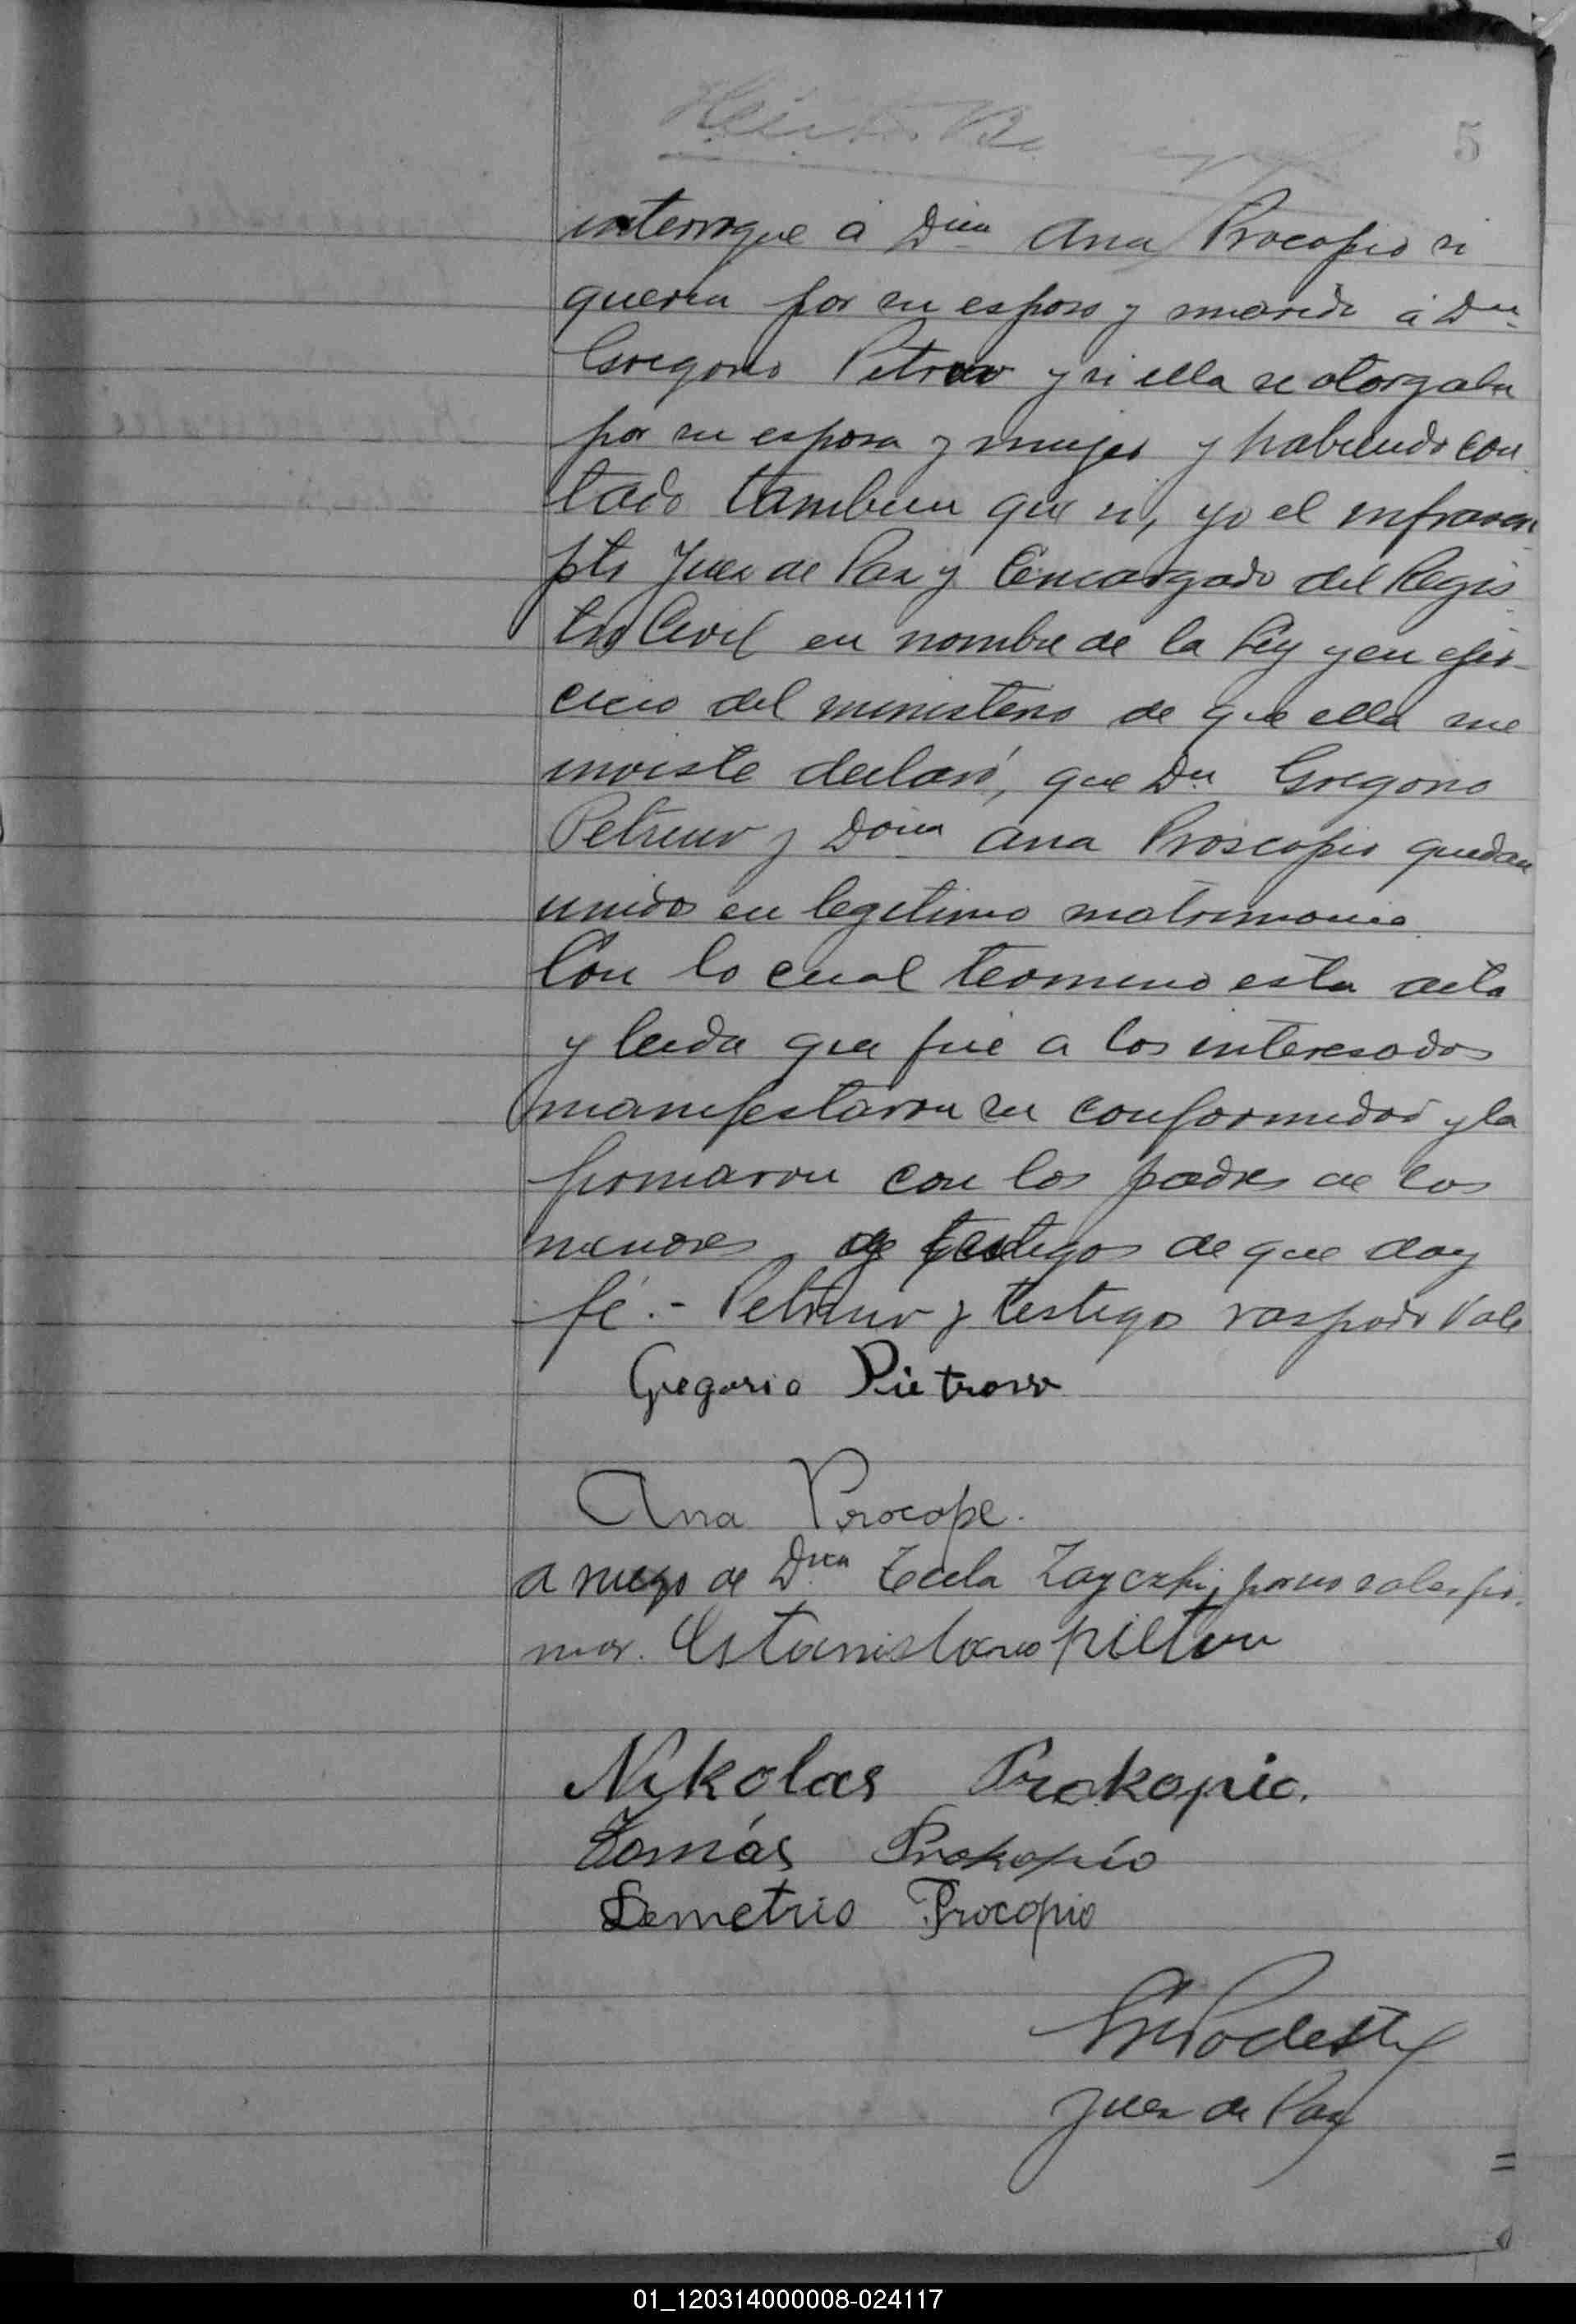 5
interrogue á Dña Ana Procopio si
queria por su esposo y marido á Dn
Gregorio Petruw y si ella se otorgaba
por su esposa y mujer y habiendo con
tado tambien que si, yo el infrascri
pto Juez de Paz y Encargado del Regis
tro Civil en nombre de la Ley y en ejer-
cicio del ministerio de que ella me
inviste declaró, que Dn Gregorio
Petruw y Doña Ana Proscopio quedan
unidos en legitimo matrimonio
Con lo cual termino esta acta
y leida que fué a los interesados
manifestaron su conformidad y la
firmaron con los padres de los
menores y testigos de que doy
fé.- Petruw y testigos raspado Vale
Gregorio Pietrow
Ana Procope.
a ruego de Dña Tecla Zayczki por no saber fir
mar. Estanislavo
Nikolas Prokopio.
Tomás Prokopío
Demetrio Procopio
Podestá
Juez de Paz
01_120314000008-024117